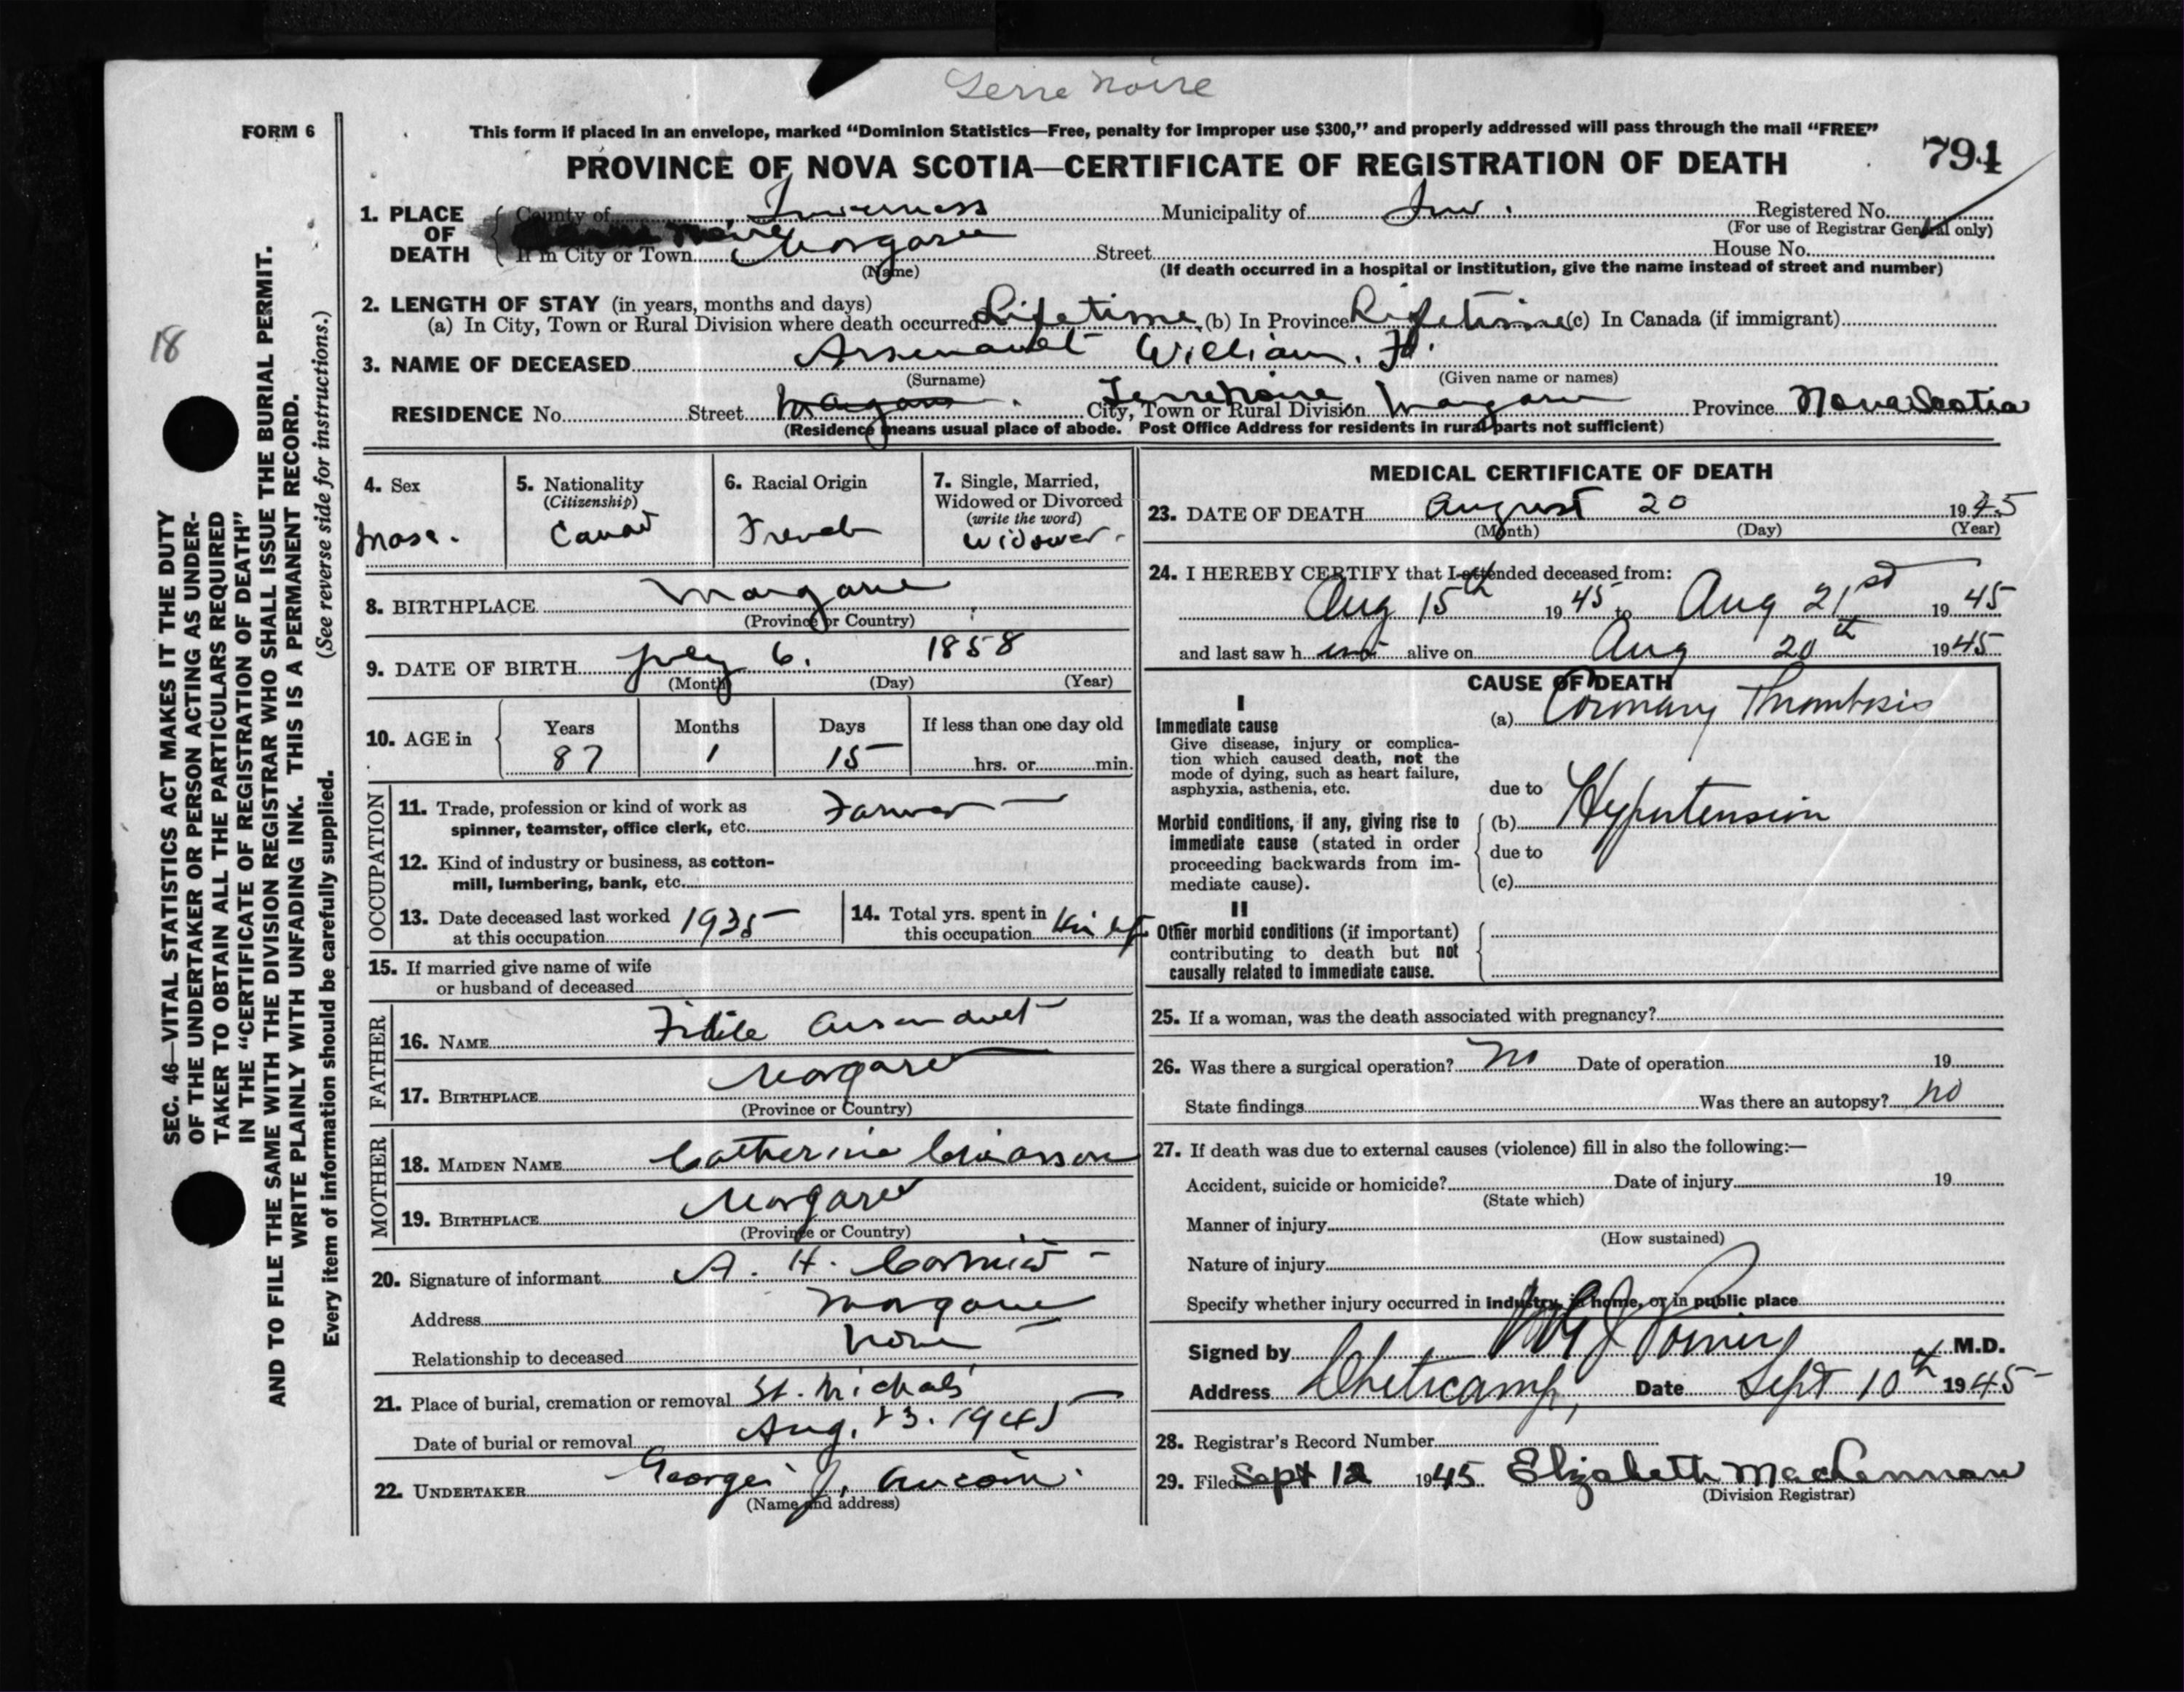 Terre Noire
FORM 6
This form if placed in an envelope, marked “Dominion Statistics—Free, penalty for improper use $300,” and properly addressed will pass through the mail “FREE”
PROVINCE OF NOVA SCOTIA—CERTIFICATE OF REGISTRATION OF DEATH
794
1. PLACE OF DEATH
County of Inverness Municipality of Inv. Registered No.
(For use of Registrar General only)
If in City or Town Margaree Street House No.
(Name) (If death occurred in a hospital or institution, give the name instead of street and number)
2. LENGTH OF STAY (in years, months and days)
(a) In City, Town or Rural Division where death occurred Lifetime (b) In Province Lifetime (c) In Canada (if immigrant)
3. NAME OF DECEASED Arsenault William. Fd.
(Surname) (Given name or names)
RESIDENCE No. Street Margaree City, Town or Rural Division Terre Noire Margaree Province Nova Scotia
(Residence means usual place of abode. Post Office Address for residents in rural parts not sufficient)
4. Sex
Masc.
5. Nationality
(Citizenship)
Canad
6. Racial Origin
French
7. Single, Married,
Widowed or Divorced
(write the word)
Widower
8. BIRTHPLACE Margaree
(Province or Country)
9. DATE OF BIRTH July 6. 1858
(Month) (Day) (Year)
10. AGE in
Years Months Days If less than one day old
87 1 15 hrs. or min.
OCCUPATION
11. Trade, profession or kind of work as
spinner, teamster, office clerk, etc. Farmer
12. Kind of industry or business, as cotton-
mill, lumbering, bank, etc.
13. Date deceased last worked
at this occupation 1935
14. Total yrs. spent in
this occupation
15. If married give name of wife
or husband of deceased
FATHER
16. NAME Fidèle Arsenault
17. BIRTHPLACE Margaree
(Province or Country)
MOTHER
18. MAIDEN NAME Catherine Chiasson
19. BIRTHPLACE Margaree
(Province or Country)
20. Signature of informant A. H. Cormier
Address Margaree
Relationship to deceased None
21. Place of burial, cremation or removal St. Michals
Date of burial or removal Aug. 23. 1945
22. UNDERTAKER George J. Aucoin
(Name and address)
MEDICAL CERTIFICATE OF DEATH
23. DATE OF DEATH August 20 1945
(Month) (Day) (Year)
24. I HEREBY CERTIFY that I attended deceased from:
Aug 15th 1945 to Aug 21st 1945
and last saw him alive on Aug 20th 1945
CAUSE OF DEATH
I
Immediate cause
Give disease, injury or complica-
tion which caused death, not the
mode of dying, such as heart failure,
asphyxia, asthenia, etc.
(a) Coronary Thrombosis
due to
Morbid conditions, if any, giving rise to
immediate cause (stated in order
proceeding backwards from im-
mediate cause).
(b) Hypertension
due to
(c)
II
Other morbid conditions (if important)
contributing to death but not
causally related to immediate cause.
25. If a woman, was the death associated with pregnancy?
26. Was there a surgical operation? No Date of operation 19
State findings Was there an autopsy? No
27. If death was due to external causes (violence) fill in also the following:—
Accident, suicide or homicide? Date of injury 19
(State which)
Manner of injury
(How sustained)
Nature of injury
Specify whether injury occurred in industry, in home, or in public place
Signed by Poirier M.D.
Address Cheticamp, Date Sept 10th 1945
28. Registrar's Record Number
29. Filed Sept 12 1945 Elizabeth MacLennan
(Division Registrar)
18
SEC. 46—VITAL STATISTICS ACT MAKES IT THE DUTY
OF THE UNDERTAKER OR PERSON ACTING AS UNDER-
TAKER TO OBTAIN ALL THE PARTICULARS REQUIRED
IN THE “CERTIFICATE OF REGISTRATION OF DEATH”
AND TO FILE THE SAME WITH THE DIVISION REGISTRAR WHO SHALL ISSUE THE BURIAL PERMIT.
WRITE PLAINLY WITH UNFADING INK. THIS IS A PERMANENT RECORD.
Every item of information should be carefully supplied. (See reverse side for instructions.)